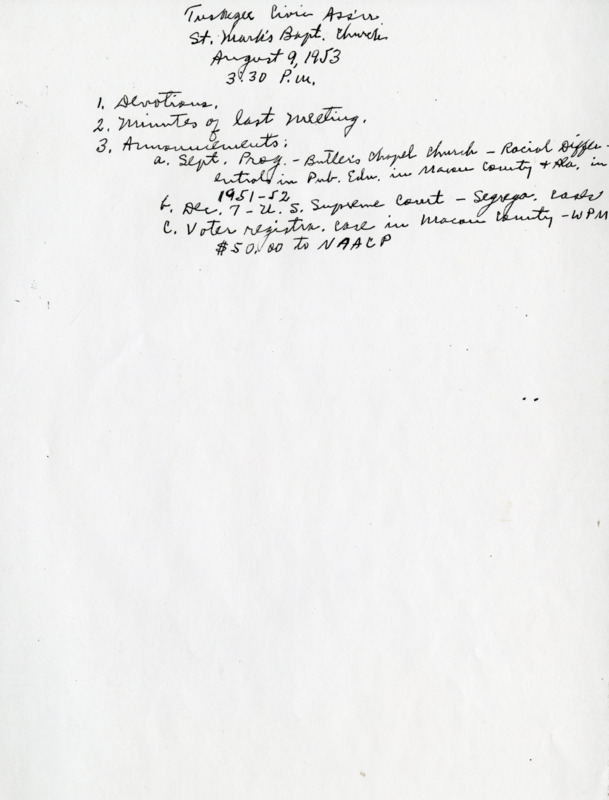 Tuskegee Civic Ass'n
St. Mark's Bapt. Church
August 9, 1953
3:30 P.m.
1. Devotions.
2. Minutes of last meeting.
3. Announcements:
a. Sept. Prog. - Butler's Chapel Church - Racial Differ-
entials in Pub. Edu. in Macon County & Ala. in
1951-52
b. Dec. 7 - U. S. Supreme Court - Segrega. cases
c. Voter registra. case in Macon County - WPM
$50.00 to NAACP